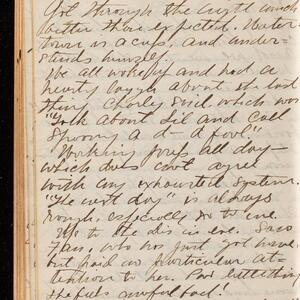 Got through the night much
better than expected. Water
town is a cuss, and under-
stands himself.
We all woke up and had a
hearty laugh about the last
thing Charley said which was
"Talk about Sil and call
Spoony a d- d fool."
Working forg all day-
which does not agree
with my exhausted system.
"The next day" is always
rough, especially so to me.
Up to the dis in eve. Saw
Fan, who has just got home,
but paid no particular at-
tention to her. Poor little thing
she feels awful bad!